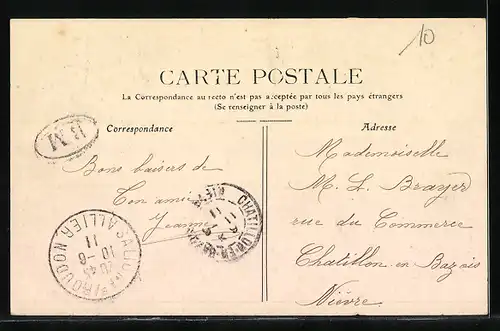 10
CARTE POSTALE
La Correspondance au recto n'est pas acceptée par tous les pays étrangers
(Se renseigner à la poste)
Correspondance
Adresse
B.M
Bons baisers de
Ton amie
Jeanne
Mademoiselle
M. L. Brayer
rue du Commerce
Chatillon en Bazois
Nièvre
ALLIER
10-6
11
CHATILLON-EN-BAZOIS
NIEVRE